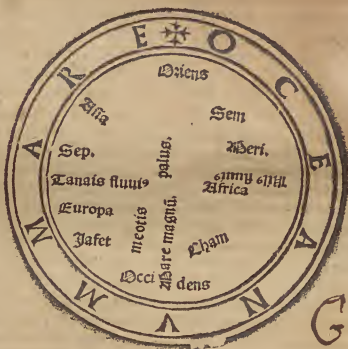 MARE OCEANVM
Oriens
Asia
Sem
Sep.
Meri.
Tanais fluuiꝰ
Nilꝰ fluuiꝰ
Africa
Europa
Jafet
meotis palus.
Mare magnũ.
Cham
Occi dens
G